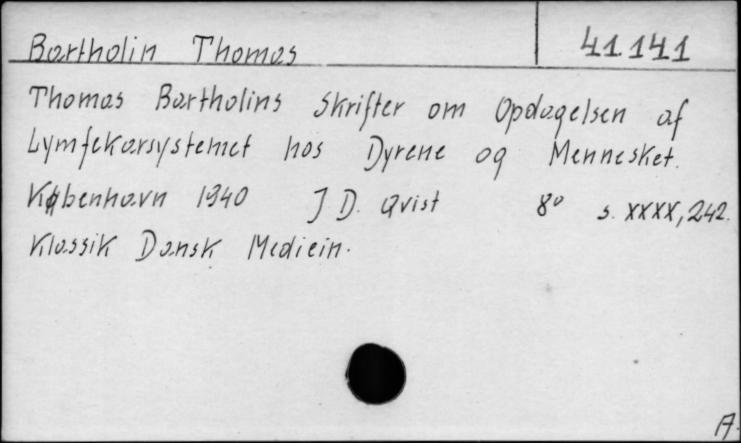 Bartholin Thomas 41141
Thomas Bartholins Skrifter om Opdagelsen af
Lymfekarsystemet hos Dyrene og Mennesket.
København 1940 J D. Qvist 8° s. XXXX, 242.
Klassik Dansk Medicin.
A.